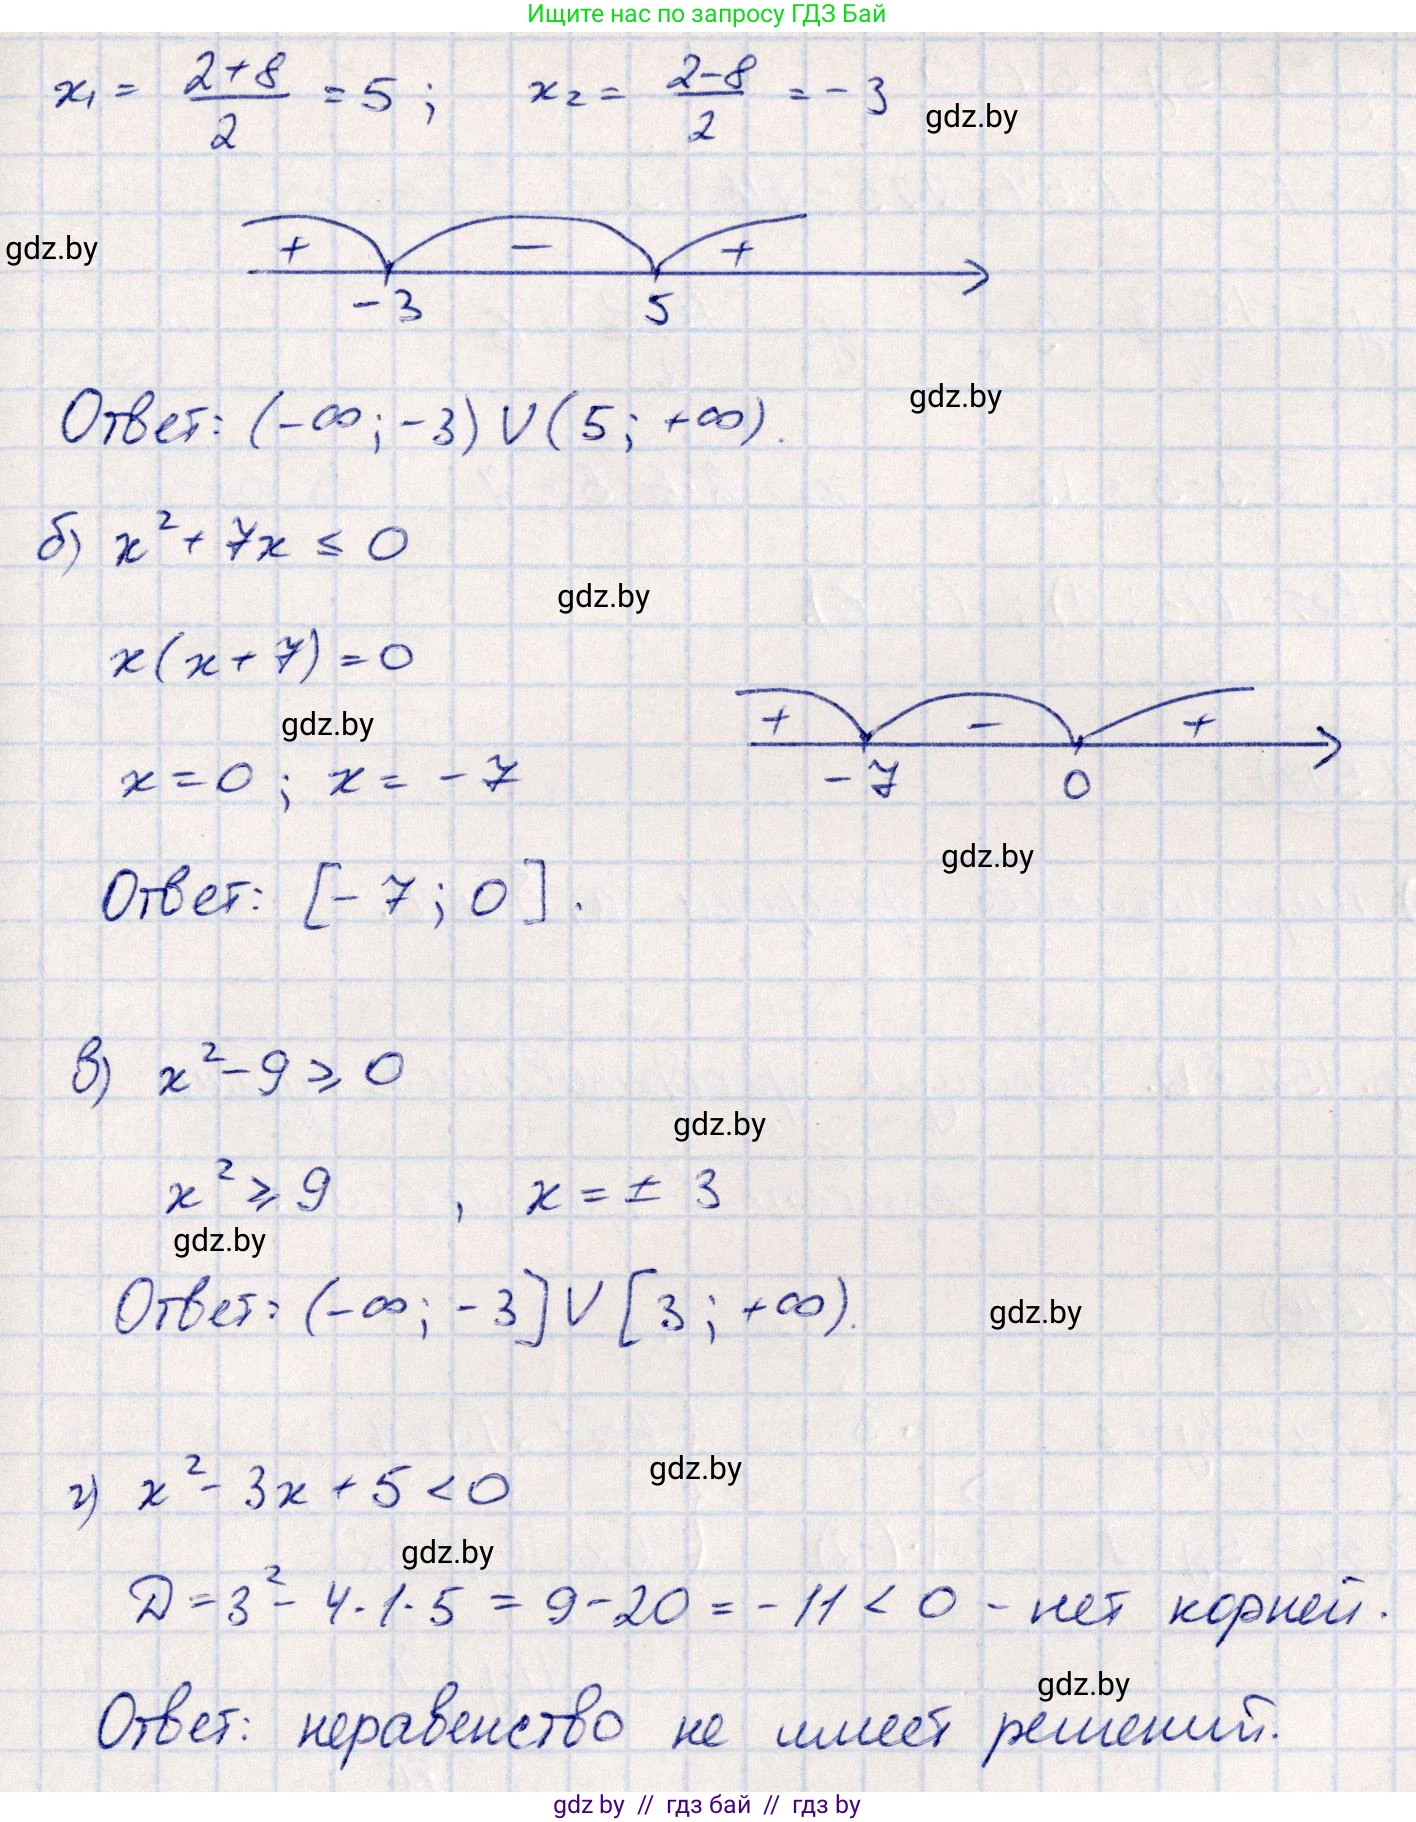 Ищите нас по запросу ГДЗ Бай
x₁ = (2+8)/2 = 5 ; x₂ = (2-8)/2 = -3
gdz.by
gdz.by
+ - +
-3 5
gdz.by
Ответ: (-∞; -3) ∪ (5; +∞).
б) x² + 7x ≤ 0
gdz.by
x(x+7) = 0
gdz.by
+ - +
x = 0 ; x = -7
-7 0
gdz.by
Ответ: [-7; 0].
в) x² - 9 ⩾ 0
gdz.by
x² ⩾ 9 , x = ± 3
gdz.by
Ответ: (-∞; -3] ∪ [3; +∞).
gdz.by
г) x² - 3x + 5 < 0
gdz.by
gdz.by
D = 3² - 4·1·5 = 9 - 20 = -11 < 0 - нет корней.
gdz.by
Ответ: неравенство не имеет решений.
gdz by // гдз бай // гдз by